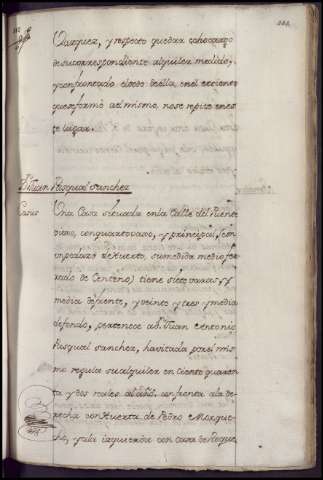 Marquez, y respecto quedar echo cargo
de su correspondiente alquiler medido,
y confrontado el todo de ella, en el
que se formó así mismo, no se repite en es
te lugar.
Dn. Juan Pasqual Sanchez
Casas
Una Casa situada en la Calle del Puente
con quarto vajo, y principal, con
un pedazo de Huerto, su medida media fa
de Centeno) tiene siete varas y
media de frente, y veinte y tres y media
de fondo, pertenece a Dn. Juan Antonio
Pasqual Sanchez, havitada por el mis
mo regula su alquiler en ciento quaren
ta y dos reales al año. confronta a la de
recha con Huerta de Pedro Marque
y a la izquierda con casa de